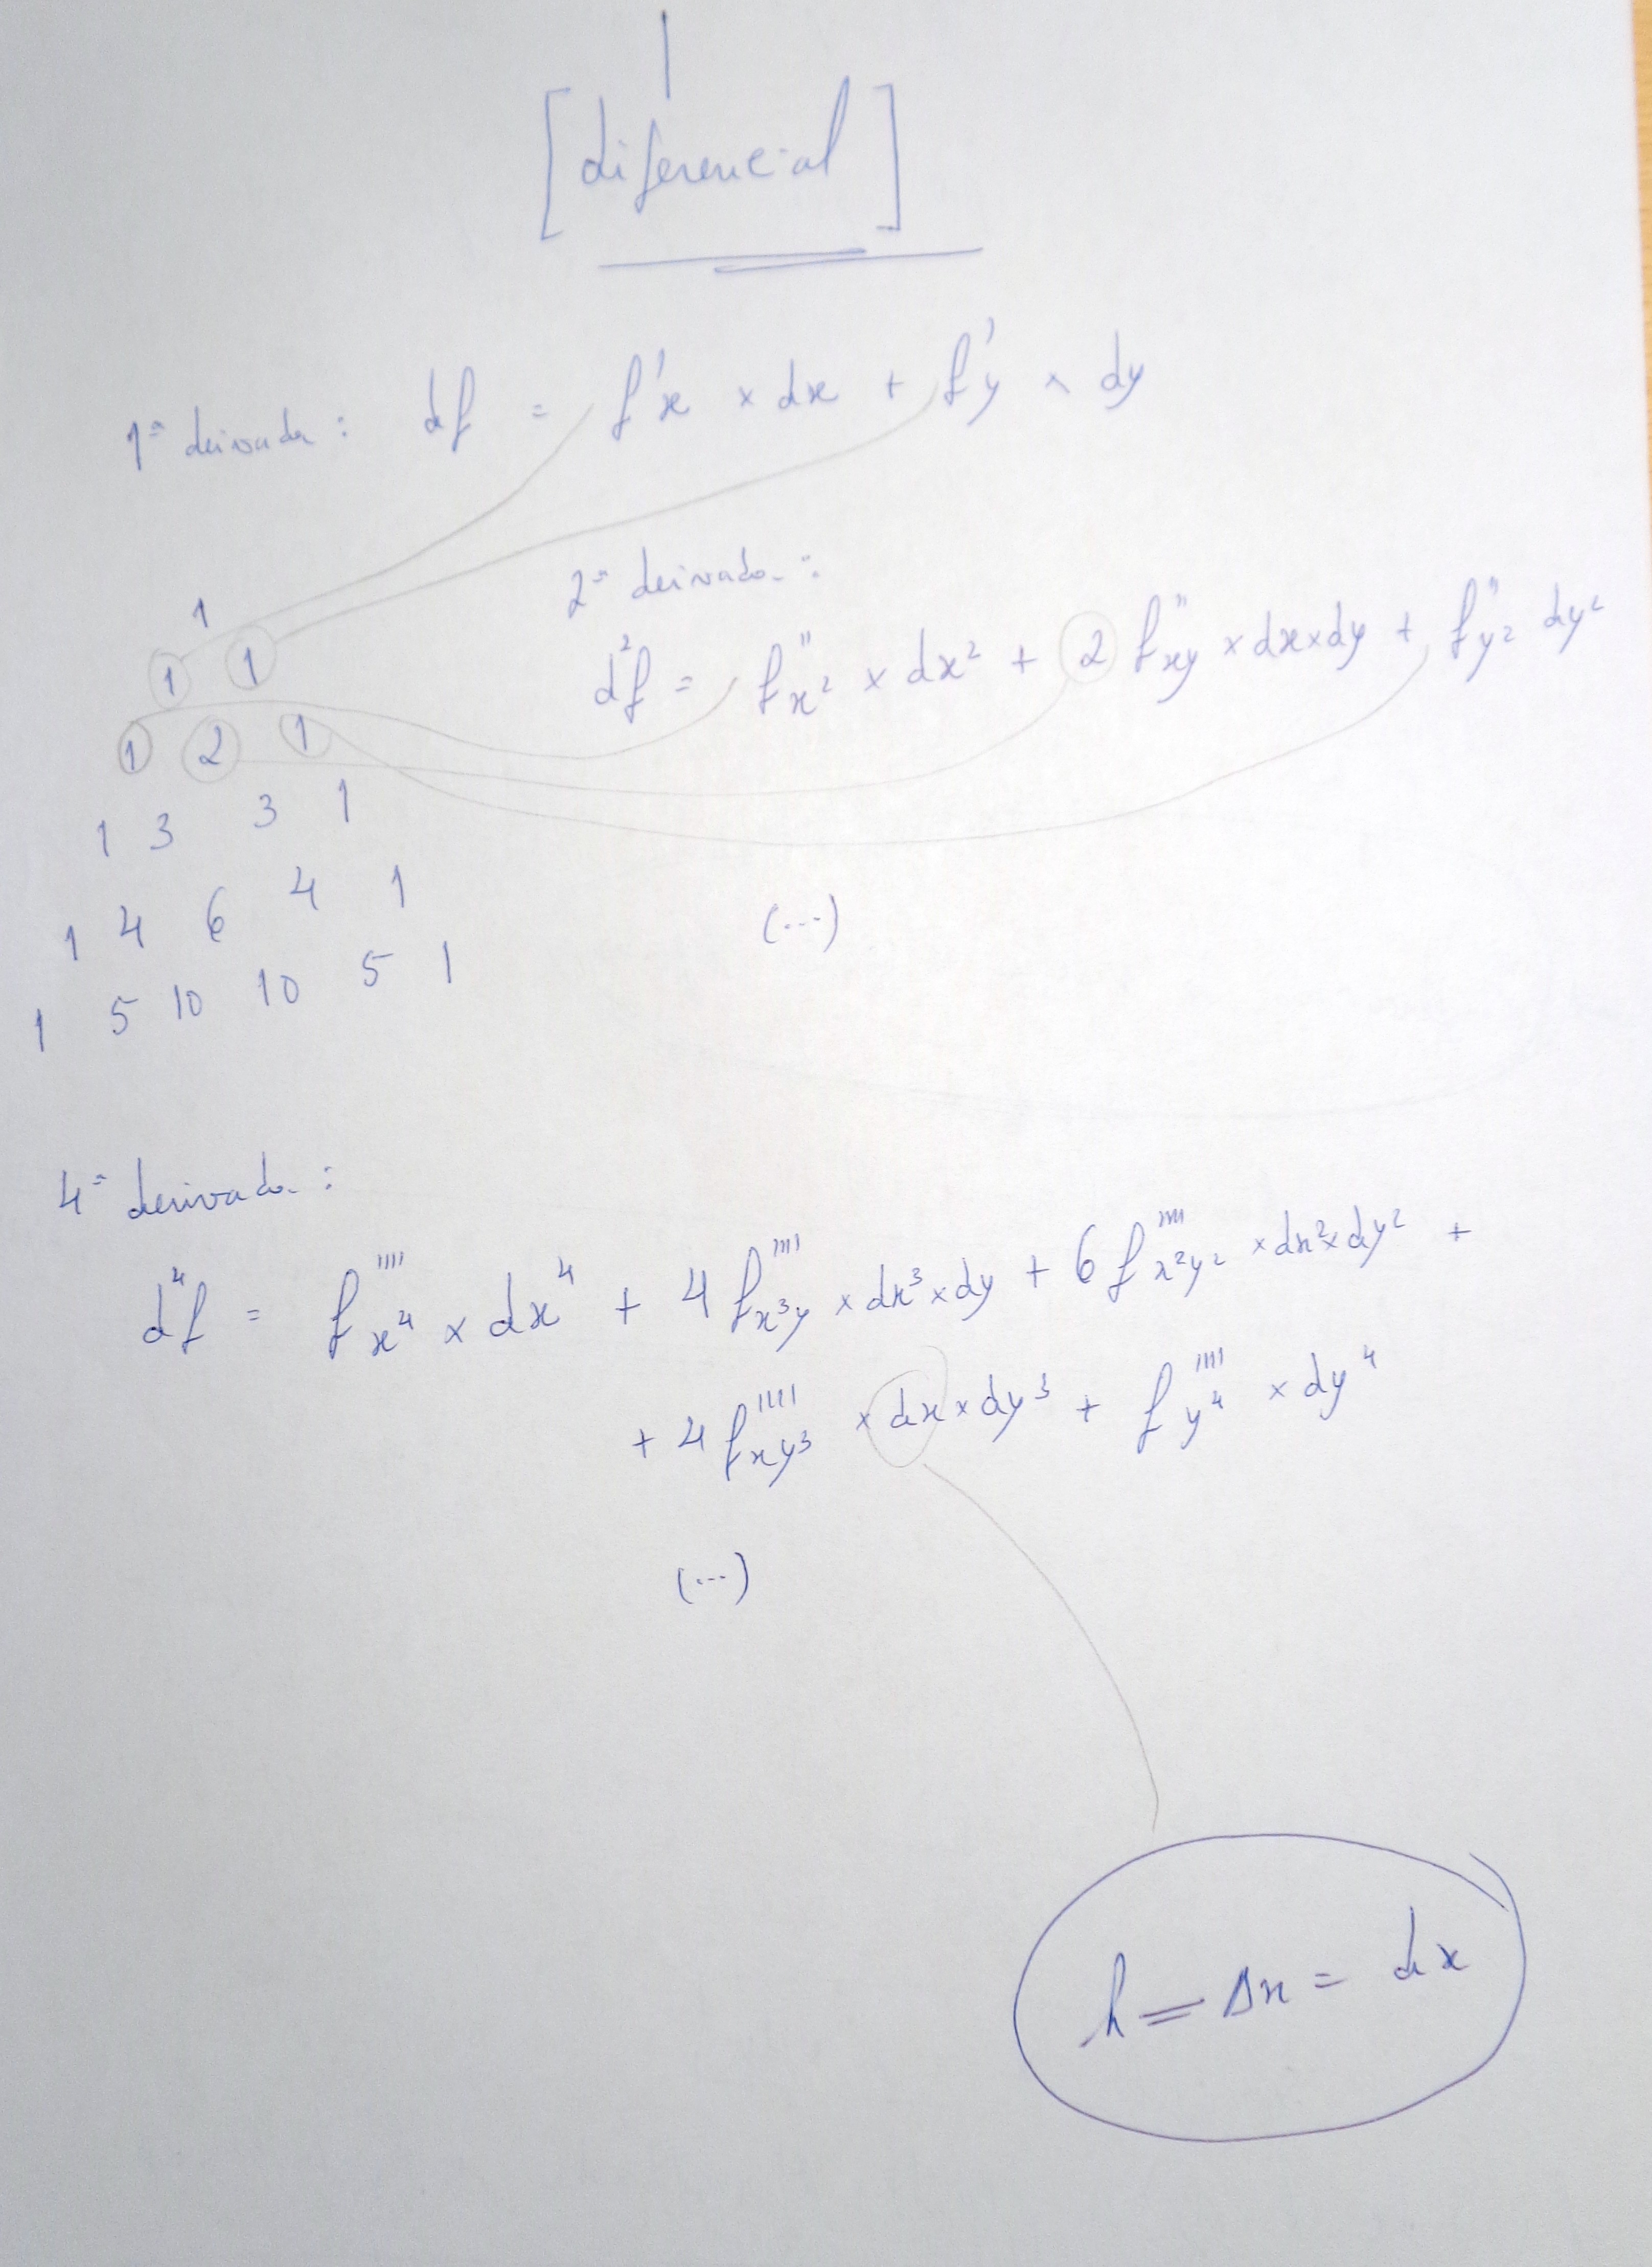 [diferencial]
1ª derivada: df = f'x × dx + f'y × dy
2ª derivada:
d²f = f''x² × dx² + 2 f''xy × dx×dy + f''y² dy²
1
1 1
1 2 1
1 3 3 1
1 4 6 4 1
1 5 10 10 5 1
(...)
4ª derivada:
d⁴f = f''''x⁴ × dx⁴ + 4 f''''x³y × dx³×dy + 6 f''''x²y² × dx²×dy² +
+ 4 f''''xy³ × dx×dy³ + f''''y⁴ × dy⁴
(...)
h = Δx = dx